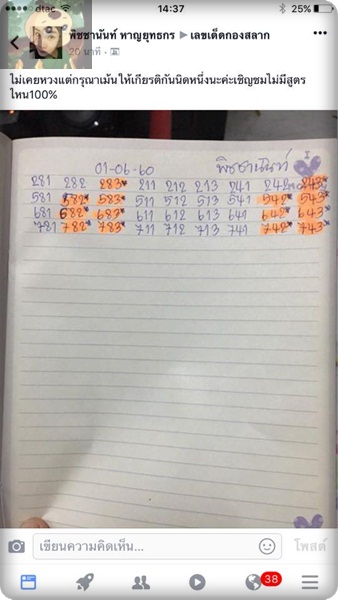 dtac 14:37 25%
พิชชานันท์ หาญยุทธกร ▶ เลขเด็ดกองสลาก
20 นาที ·
ไม่เคยหวงแต่กรุณาเม้นให้เกียรติกันนิดหนึ่งนะค่ะเชิญชมไม่มีสูตร
ไหน100%
01-06-60 พิชชานันท์
281 282 283 211 212 213 241 242 243
581 582 583 511 512 513 541 542 543
681 682 683 611 612 613 641 642 643
781 782 783 711 712 713 741 742 743
เขียนความคิดเห็น... โพสต์
38